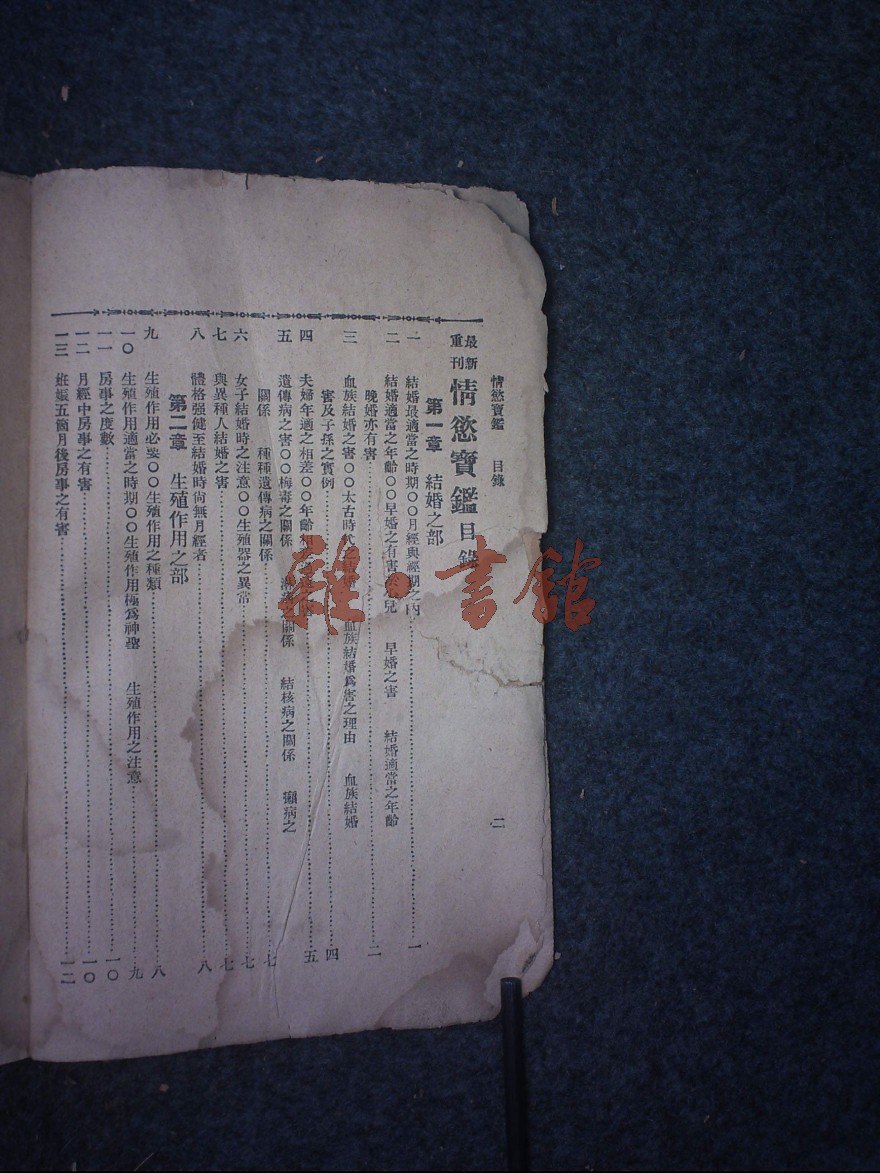 情慾寶鑑　目錄　二
最新重刊 情慾寶鑑目錄
第一章　結婚之部
一　結婚最適當之時期〇〇月經與經期之內……一
二　結婚適當之年齡〇〇早婚之有害　兒　早婚之害　結婚適當之年齡
晚婚亦有害……二
三　血族結婚之害〇〇太古時代之　血族結婚爲害之理由　血族結婚
害及子孫之實例……四
四　夫婦年適之相差〇〇年齡相　之害……五
五　遺傳病之害〇〇梅毒之關係　關係　結核病之關係　癩病之
關係　種種遺傳病之關係……七
六　女子結婚時之注意〇〇生殖器之異常……七
七　與異種人結婚之害……七
八　體格强健至結婚時尙無月經者……八
第二章　生殖作用之部
九　生殖作用必要〇〇生殖作用之種類……八
一〇　生殖作用適當之時期〇〇生殖作用極爲神聖　生殖作用之注意……九
一一　房事之度數……一〇
一二　月經中房事之有害……一〇
一三　妊娠五箇月後房事之有害……一二
雜·書館